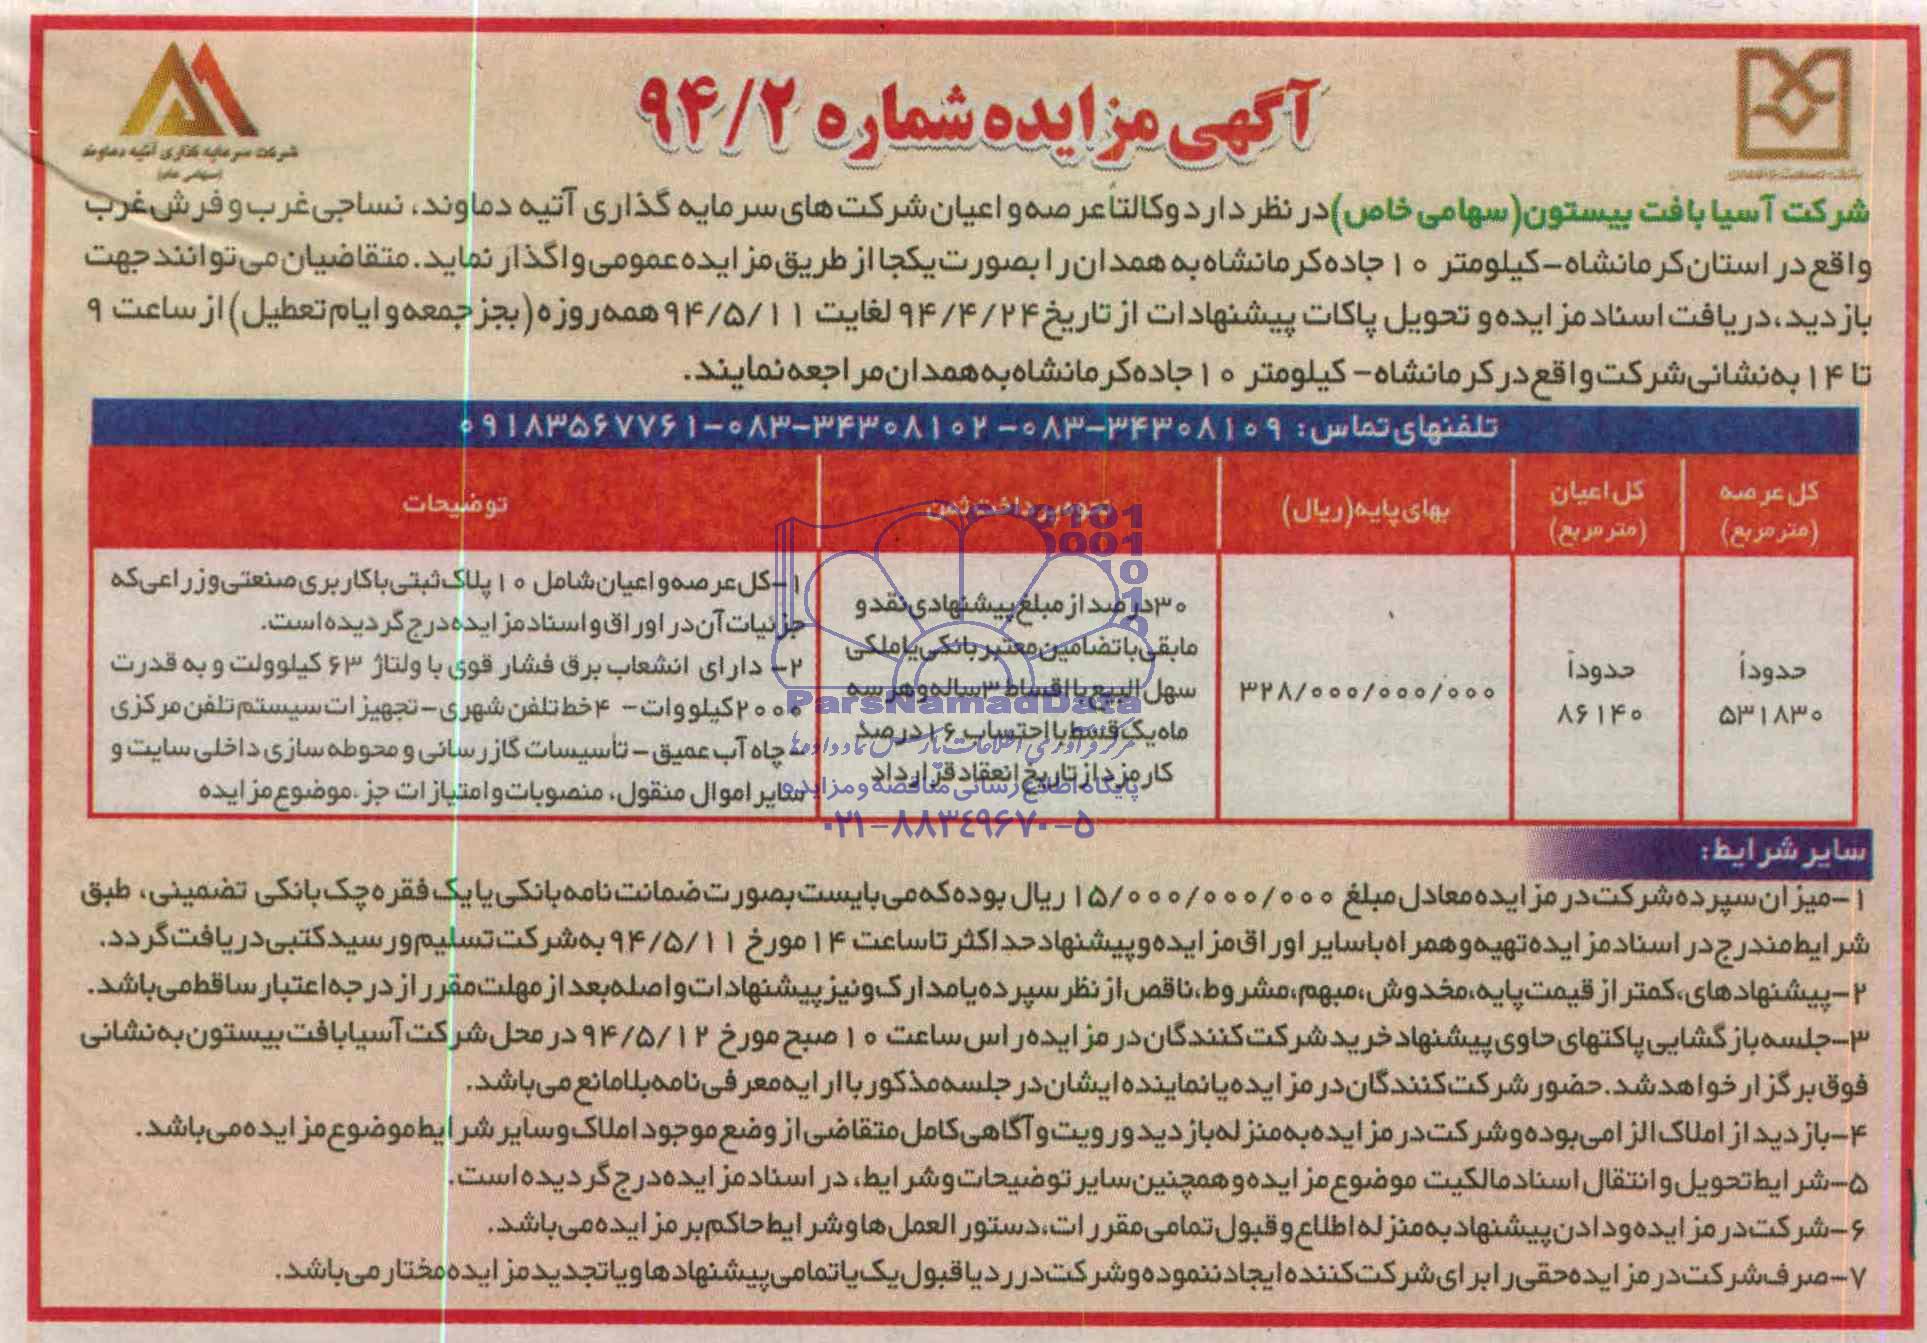 آگهی مزایده شماره ۹۴/۲
شرکت سرمایه گذاری آتیه دماوند
(سهامی عام)
شرکت آسیا بافت بیستون(سهامی خاص)در نظر دارد وکالتاً عرصه و اعیان شرکت های سرمایه گذاری آتیه دماوند، نساجی غرب و فرش غرب
واقع در استان کرمانشاه-کیلومتر ۱۰ جاده کرمانشاه به همدان را بصورت یکجا از طریق مزایده عمومی واگذار نماید. متقاضیان می توانند جهت
بازدید، دریافت اسناد مزایده و تحویل پاکات پیشنهادات از تاریخ ۹۴/۴/۲۴ لغایت ۹۴/۵/۱۱ همه روزه (بجز جمعه و ایام تعطیل) از ساعت ۹
تا ۱۴ به نشانی شرکت واقع در کرمانشاه- کیلومتر ۱۰ جاده کرمانشاه به همدان مراجعه نمایند.
تلفنهای تماس: ۰۸۳-۳۴۳۰۸۱۰۹ - ۰۸۳-۳۴۳۰۸۱۰۲-۰۹۱۸۳۵۶۷۷۶۱
کل عرصه
(متر مربع)
کل اعیان
(متر مربع)
بهای پایه(ریال)
نحوه پرداخت ثمن
توضیحات
حدوداً
۵۳۱۸۳۰
حدوداً
۸۶۱۴۰
۳۲۸/۰۰۰/۰۰۰/۰۰۰
۳۰درصد از مبلغ پیشنهادی نقد و
مابقی با تضامین معتبر بانکی یا ملکی
سهل البیع با اقساط ۳ساله و هر سه
ماه یک قسط با احتساب ۱۶ درصد
کارمزد از تاریخ انعقاد قرارداد
۱-کل عرصه و اعیان شامل ۱۰ پلاک ثبتی با کاربری صنعتی و زراعی که
جزئیات آن در اوراق و اسناد مزایده درج گردیده است.
۲- دارای انشعاب برق فشار قوی با ولتاژ ۶۳ کیلوولت و به قدرت
۲۰۰۰کیلووات- ۴ خط تلفن شهری-تجهیزات سیستم تلفن مرکزی
- چاه آب عمیق - تأسیسات گازرسانی و محوطه سازی داخلی سایت و
سایر اموال منقول، منصوبات و امتیازات جزء موضوع مزایده
0101
0001
10
ParsNamadData
مرکز فرآوری اطلاعات پارس نماد داده‌ها
پایگاه اطلاع رسانی مناقصه و مزایده
۰۲۱-۸۸۳۴۹۶۷۰-۵
سایر شرایط:
۱-میزان سپرده شرکت در مزایده معادل مبلغ ۱۵/۰۰۰/۰۰۰/۰۰۰ ریال بوده که می بایست بصورت ضمانت نامه بانکی یا یک فقره چک بانکی تضمینی، طبق
شرایط مندرج در اسناد مزایده تهیه و همراه با سایر اوراق مزایده و پیشنهاد حداکثر تا ساعت ۱۴ مورخ ۹۴/۵/۱۱ به شرکت تسلیم و رسید کتبی دریافت گردد.
۲-پیشنهادهای، کمتر از قیمت پایه، مخدوش، مبهم، مشروط، ناقص از نظر سپرده یا مدارک و نیز پیشنهادات واصله بعد از مهلت مقرر از درجه اعتبار ساقط می باشد.
۳-جلسه بازگشایی پاکتهای حاوی پیشنهاد خرید شرکت کنندگان در مزایده راس ساعت ۱۰ صبح مورخ ۹۴/۵/۱۲ در محل شرکت آسیا بافت بیستون به نشانی
فوق برگزار خواهد شد. حضور شرکت کنندگان در مزایده یا نماینده ایشان در جلسه مذکور با ارایه معرفی نامه بلامانع می باشد.
۴-بازدید از املاک الزامی بوده و شرکت در مزایده به منزله بازدید و رویت و آگاهی کامل متقاضی از وضع موجود املاک و سایر شرایط موضوع مزایده می باشد.
۵-شرایط تحویل و انتقال اسناد مالکیت موضوع مزایده و همچنین سایر توضیحات و شرایط، در اسناد مزایده درج گردیده است.
۶-شرکت در مزایده و دادن پیشنهاد به منزله اطلاع و قبول تمامی مقررات، دستورالعمل ها و شرایط حاکم بر مزایده می باشد.
۷-صرف شرکت در مزایده حقی را برای شرکت کننده ایجاد ننموده و شرکت در رد یا قبول یک یا تمامی پیشنهادها و یا تجدید مزایده مختار می باشد.